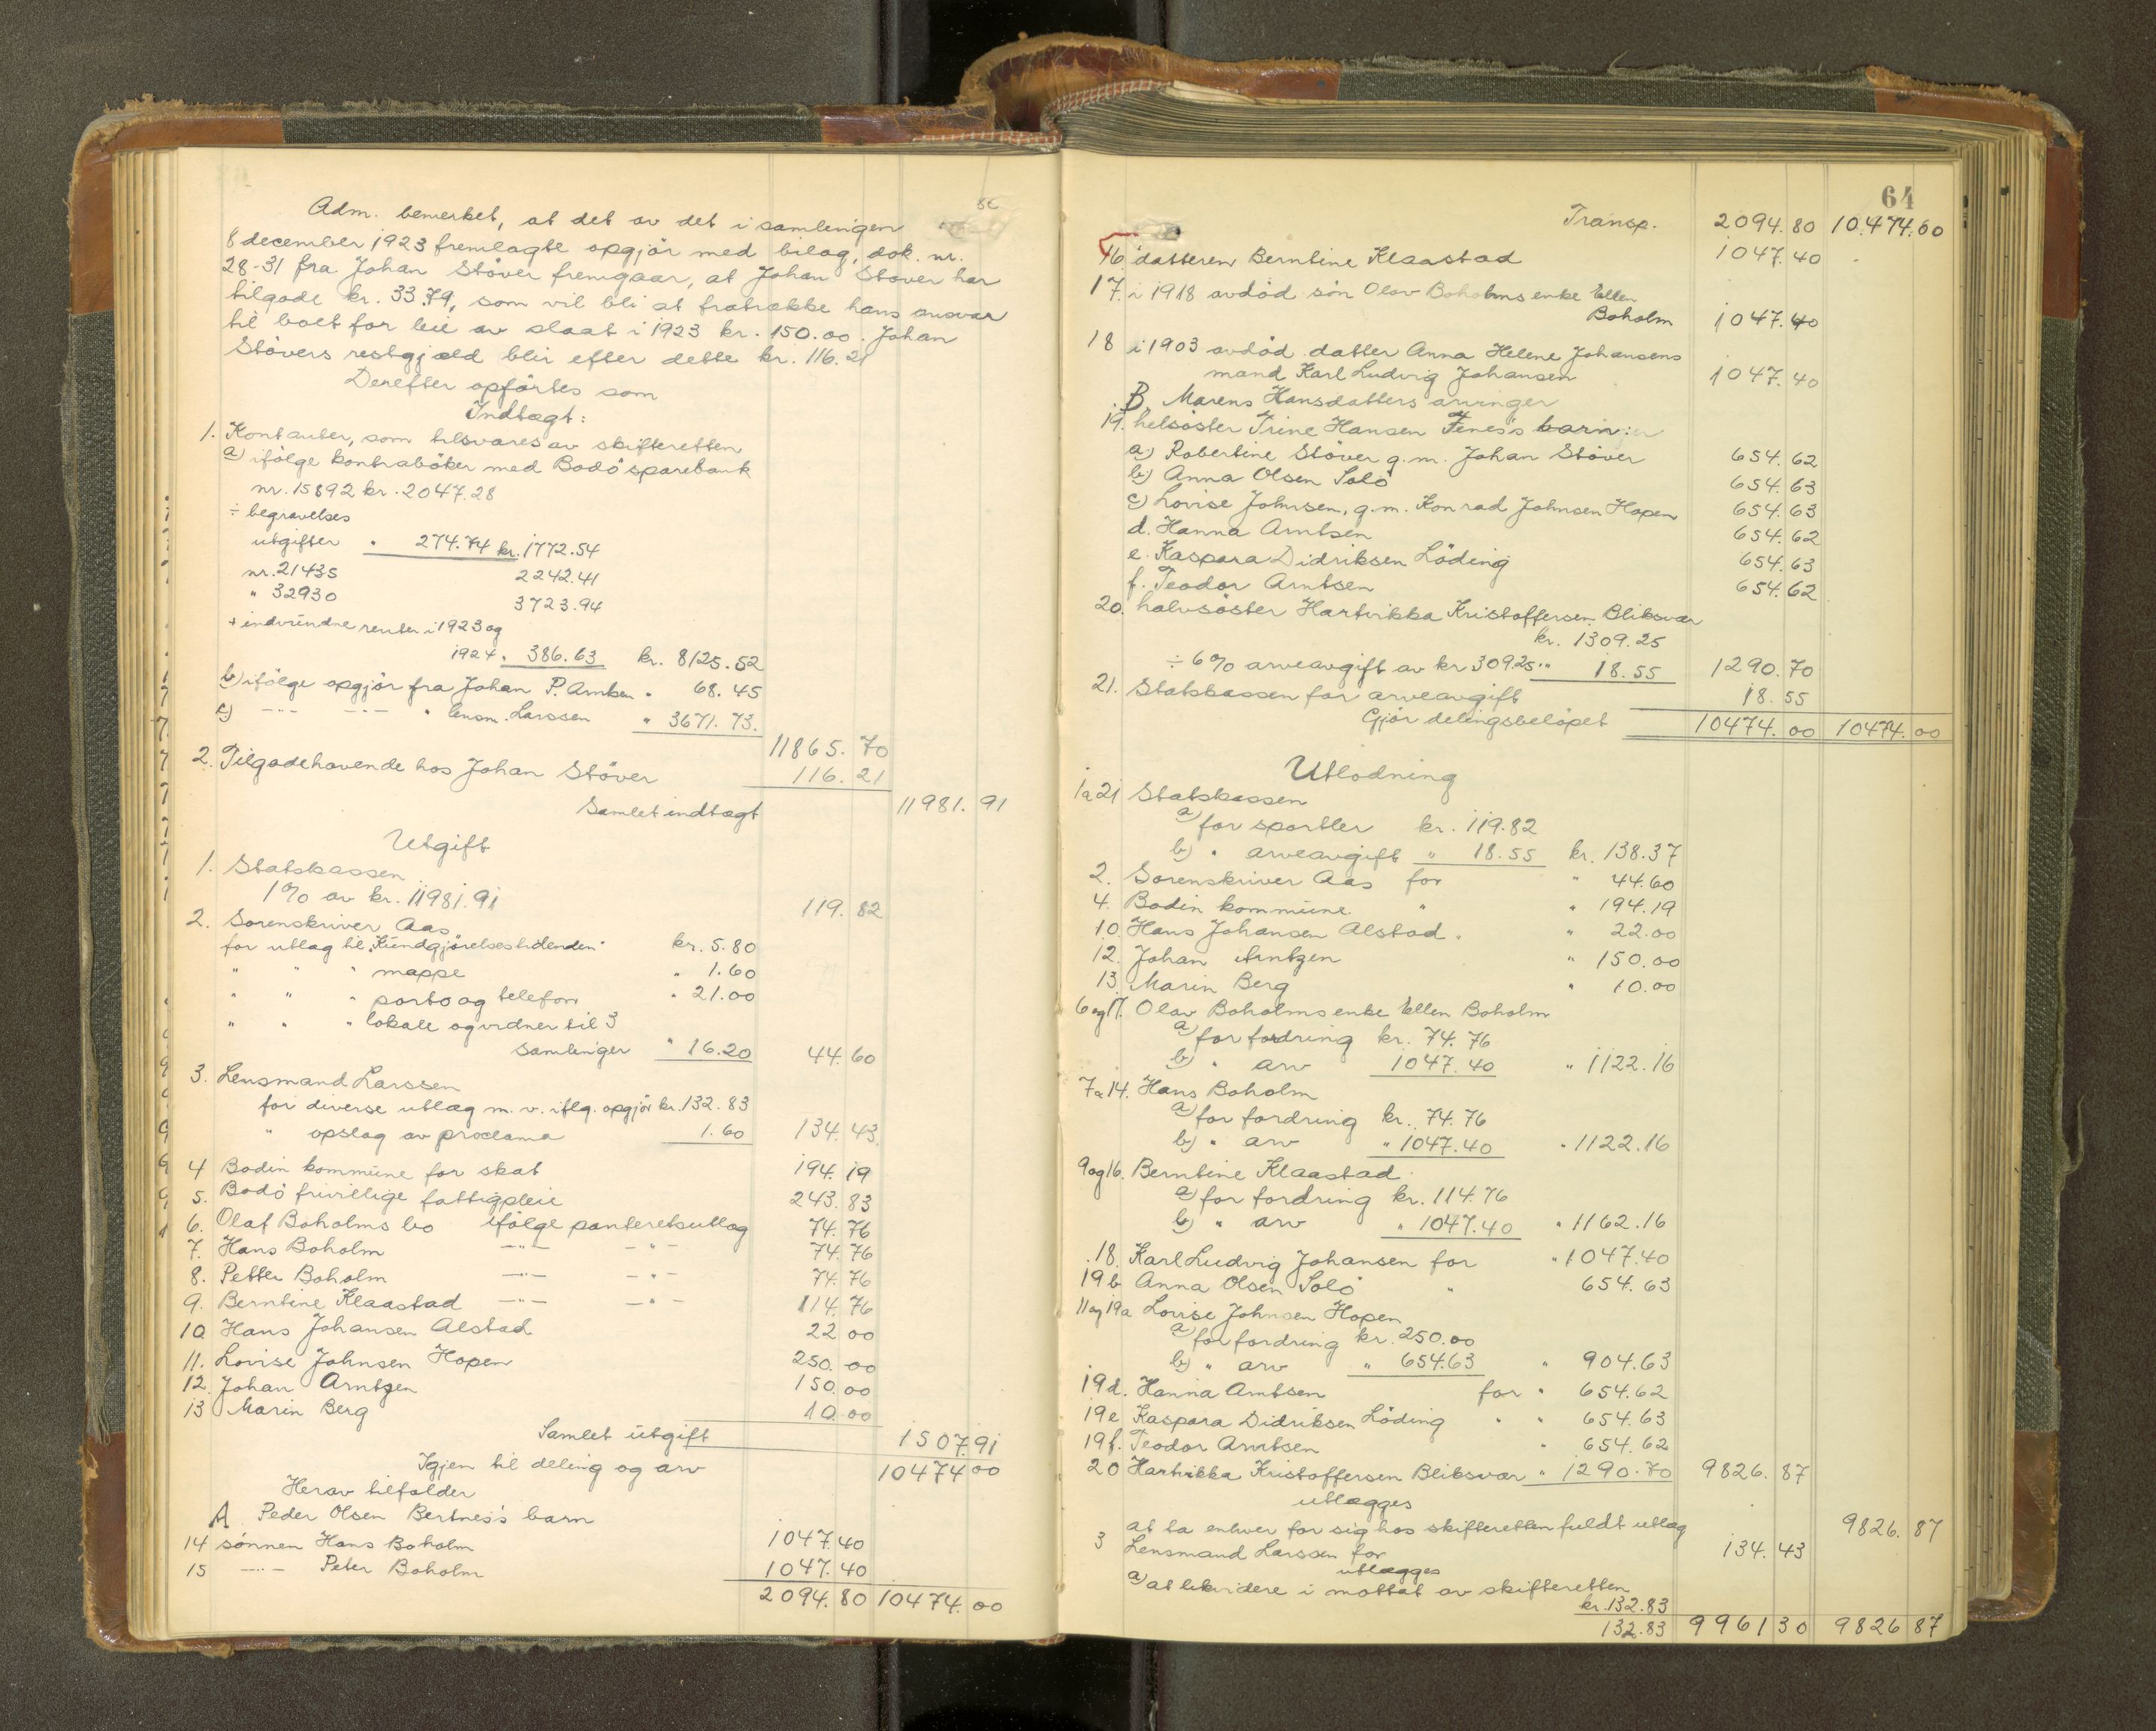 Adm. bemerket, at det av det i samlingen
8 december 1923 fremlagte opgjör med bilag, dok. nr.
28-31 fra Johan Stöver fremgaar, at Johan Stöver har
tilgode kr. 33.79, som vil bli at fratrække hans ansvar
til boet for leie av slaat i 1923 kr. 150.00. Johan
Stövers restgjæld blir efter dette kr. 116.21
Derefter opförtes som
Indtægt:
1. Kontanter, som tilsvares av skifteretten
a) ifölge kontraböker med Bodö sparebank
nr. 15892 kr. 2047.28
÷ begravelses
utgifter " 274.74 kr. 1772.54
nr. 21435 2242.41
" 32930 3723.94
+ indvundne renter i 1923 og
1924 " 386.63 kr. 8125.52
b) ifölge opgjör fra Johan P. Arntsen " 68.45
c) —"— —"— " lensm. Larssen " 3671.73.
11865.70
2. Tilgodehavende hos Johan Stöver 116.21
Samlet indtægt 11981.91
Utgift
1. Statskassen
1% av kr. 11981.91 119.82
2. Sorenskriver Aas
for utlæg til "Kundgjörelsestidenden" kr. 5.80
" " " mappe " 1.60
" " " porto og telefon " 21.00
" " " lokale og vidner til 3
samlinger " 16.20 44.60
3. Lensmand Larssen
for diverse utlæg m. v. iflg. opgjör kr. 132.83
" opslag av proclama 1.60 134.43.
4 Bodin kommune for skat 194.19
5. Bodö frivillige fattigpleie 243.83
6. Olaf Boholms bo ifölge panteretsutlæg 74.76
7. Hans Boholm —"— —"— 74.76
8. Petter Boholm —"— —"— 74.76
9. Berntine Klaastad —"— —"— 114.76
10 Hans Johansen Alstad 22 00
11. Lovise Johnsen Hopen 250.00
12. Johan Arntzen 150.00
13 Marin Berg 10.00
Samlet utgift 1507.91
Igjen til deling og arv 10474 00
Herav tilfalder
A Peder Olsen Bertnes's barn
14 sönnen Hans Boholm 1047.40
15 —"— Peter Boholm 1047.40
2094.80 10474.00
64
Transp. 2094.80 10.474.00
16. datteren Berntine Klaastad 1047.40
17. i 1918 avdöd sön Olav Boholms enke Ellen
Boholm 1047.40
18 i 1903 avdöd datter Anna Helene Johansens
mand Karl Ludvig Johansen 1047.40
B. Marens Hansdatters arvinger
19. helsöster Trine Hansen Fenes's barn:
a) Robertine Stöver g.m. Johan Stöver 654.62
b) Anna Olsen Solö 654.63
c) Lovise Johnsen, g.m. Konrad Johnsen Hopen 654.63
d. Hanna Arntsen 654.62
e. Kaspara Didriksen Löding 654.63
f. Teodor Arntsen 654.62
20. halvsöster Hartvikka Kristoffersen Bliksvær
kr. 1309.25
÷ 6% arveavgift av kr 309.25 " 18.55 1290.70
21. Statskassen for arveavgift 18.55
Gjör delingsbelöpet 10474.00 10474.00
Utlodning
1 a 21 Statskassen
a) for sportler kr. 119.82
b) " arveavgift " 18.55 kr. 138.37
2. Sorenskriver Aas for " 44.60
4. Bodin kommune " " 194.19
10. Hans Johansen Alstad " " 22.00
12. Johan Arntzen " 150.00
13. Marin Berg " 10.00
6 og 17. Olav Boholms enke Ellen Boholm
a) for fordring kr. 74.76
b) " arv 1047.40 " 1122.16
7 a 14. Hans Boholm
a) for fordring kr. 74.76
b) " arv " 1047.40 " 1122.16
9 og 16. Berntine Klaastad
a) for fordring kr. 114.76
b) " arv " 1047.40 " 1162.16
18. Karl Ludvig Johansen for " 1047.40
19 b Anna Olsen Solö " 654.63
11 og 19 a Lovise Johnsen Hopen
a) for fordring kr. 250.00
b) " arv " 654.63 " 904.63
19 d. Hanna Arntsen for " 654.62
19 e Kaspara Didriksen Löding " " 654.63
19 f. Teodor Arntsen " 654.62
20 Hartvikka Kristoffersen Bliksvær " 1290.70 9826.87
utlægges
at ta enhver for sig hos skifteretten fuldt utlæg 9826.87
3 Lensmand Larssen for 134.43
utlægges
a) at likvidere i mottat av skifteretten
kr. 132.83
132.83 9961 30 9826 87